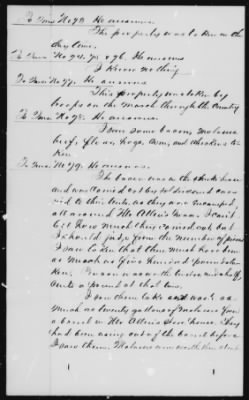 To Int. No 73. He answers
The property was taken in the
day time.
To Int. No 74, 75 & 76. He answers
I know nothing
To Int. No 77. He answers
This property was taken by
troops on the march through the country
To Int. No 78. He answers
I saw some bacon, molasses
beef, flour, hogs, corn, and chickens ta-
ken.
To Int. No 79. He answers
The bacon was in the smoke house
and was carried out by soldiers and car-
ried to their tents, as they were encamped
all around Mr Allen's house I can't
tell how much they carried out but
I should judge from the number of pieces
I saw taken that there must have been
as much as five hundred pounds ta-
ken. Bacon was worth
cents a pound at that time.
I saw them take as
much as twenty gallons of molasses from
a barrel in Mr Allen's house. They
had been using out of the barrel before
I saw them. Molasses was worth